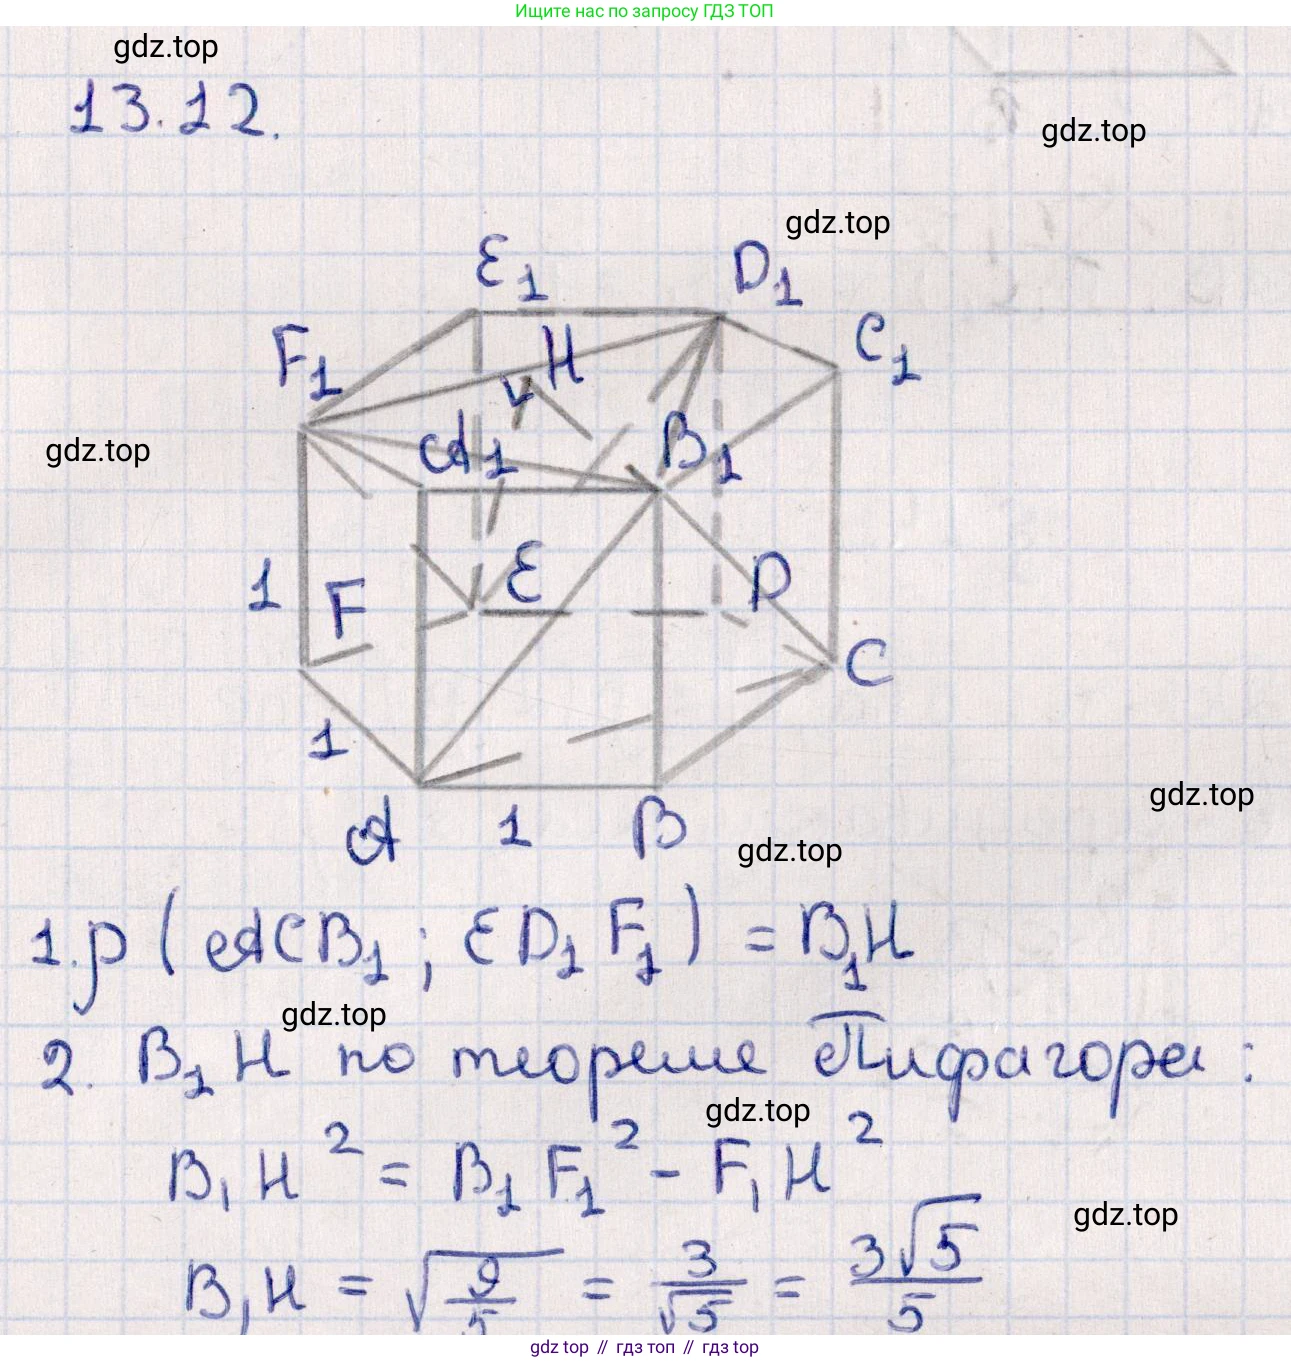 Ищите нас по запросу ГДЗ ТОП
gdz.top
13.12.
gdz.top
gdz.top
E₁ D₁
F₁ H C₁
gdz.top
A₁ B₁
gdz.top
1 F E D
C
1
gdz.top
A 1 B
gdz.top
1. ρ (ACB₁; ED₁F₁) = B₁H
gdz.top
2. B₁H по теореме Пифагора:
gdz.top
B₁H² = B₁F₁² - F₁H²
gdz.top
B₁H = √(9/5) = 3/√5 = 3√5/5
gdz top // гдз топ // gdz top